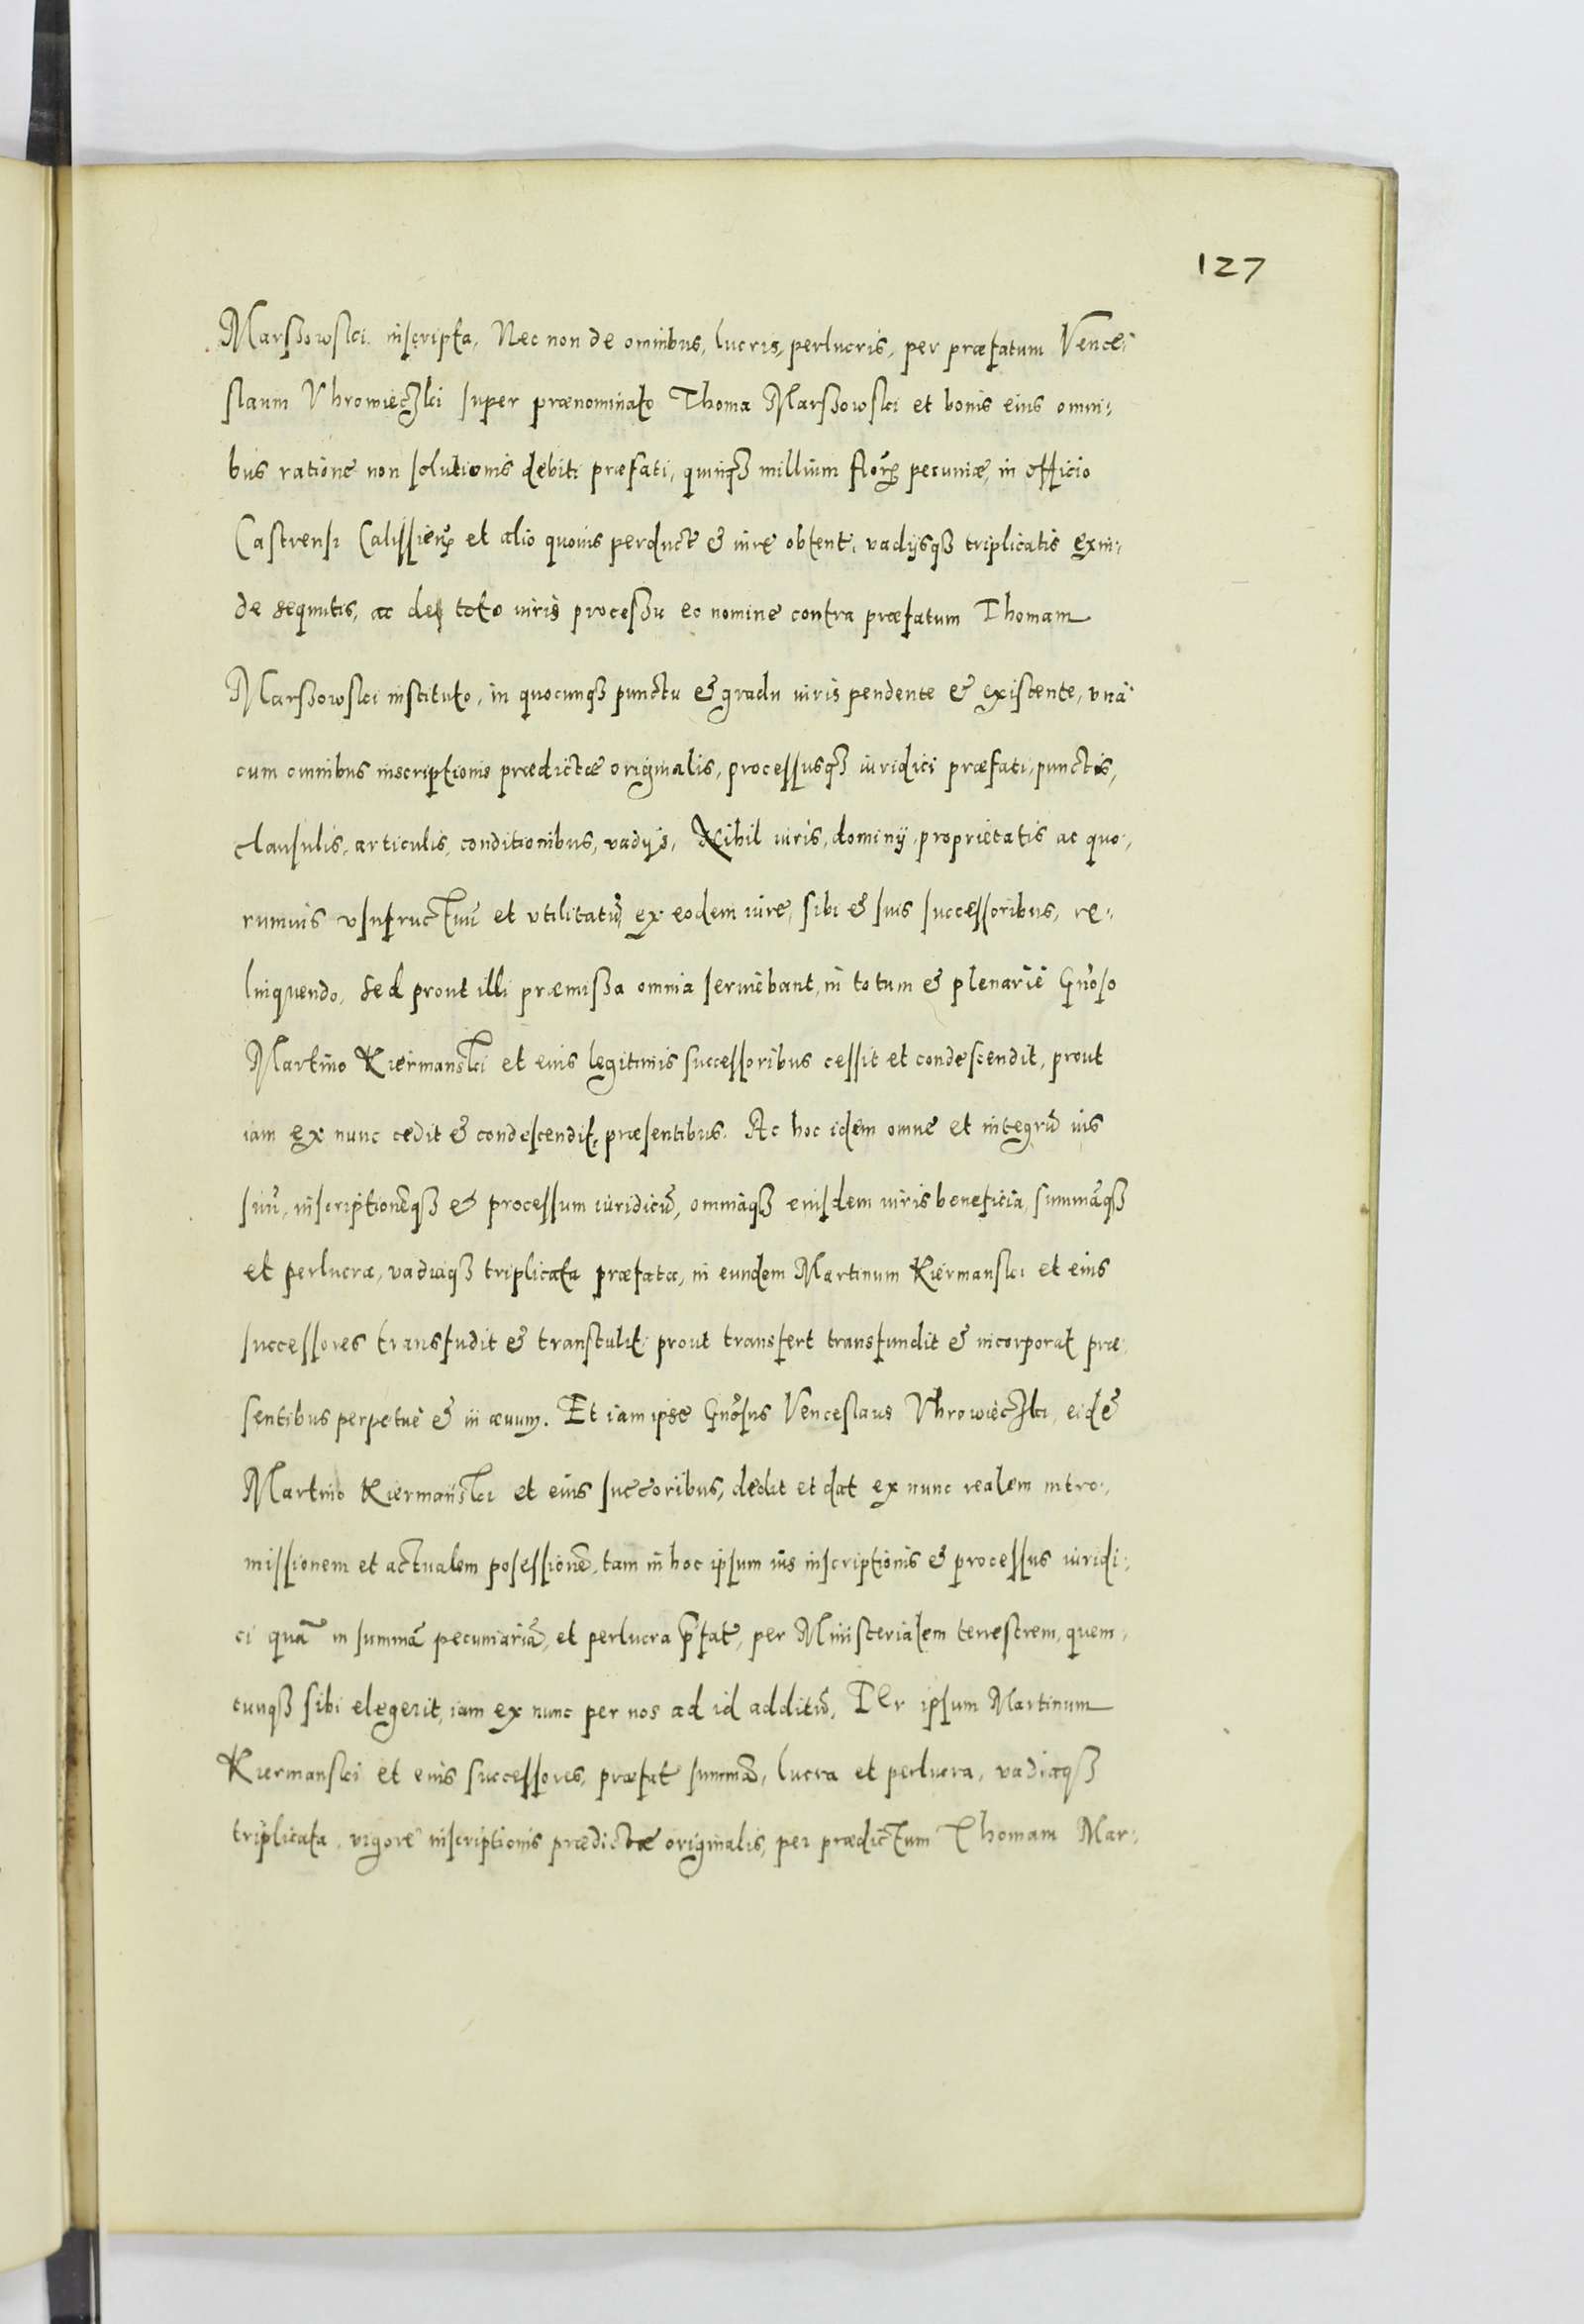 127
Marssowski inscripta, Nec non de omnibus, lucris, perlucris, per præfatum Vence-
slaum Vhrowieczki super prænominato Thoma Marssowski et bonis eius omni-
bus ratione non solutionis debiti præfati, quinqȝ millium floꝝ pecuniæ, in officio
Castrensi Calissieñ et alio quouis perducť & iure obtenť. vadijsqȝ triplicatis exin-
de sequutis, ac de toto iuris processu eo nomine contra præfatum Thomam
Marssowski instituto, in quocunqȝ punctu & gradu iuris pendente & existente, vnà
cum omnibus inscriptionis prædictæ originalis, processusqȝ iuridici præfati, punctis,
clausulis, articulis, conditionibus, vadijs, Nihil iuris, dominij, proprietatis ac quo-
rumuis vsufructuū et vtilitatū, ex eodem iure, sibi & suis successoribus, re-
linquendo, sed prout illi præmissa omnia seruiebant, in totum & plenariè Gñoso
Martino Kiermanski et eius legitimis successoribus cessit et condescendit, prout
iam ex nunc cedit & condescendit, præsentibus. Ac hoc idem omne et integrū ius
suū, inscriptionēqȝ & processum iuridicū, omniaqȝ eiusdem iuris beneficia, summāqȝ
et perlucra, vadiaqȝ triplicata præfata, in eundem Martinum Kiermanski et eius
successores transfudit & transtulit, prout transfert transfundit & incorporat præ-
sentibus perpetuè & in æuum. Et iam ipse Gñosus Venceslaus Vhrowieczki, eidē
Martino Kiermanski et eius succoribus, dedit et dat ex nunc realem intro-
missionem et actualem posessionē, tam in hoc ipsum ius inscriptionis & processus iuridi-
ci quā in summā pecuniariā, et perlucra p̄fať, per Ministerialem terrestrem, quem-
cunqȝ sibi elegerit, iam ex nunc per nos ad id additū, Per ipsum Martinum
Kiermanski et eius successores, præfať summā, lucra et perlucra, vadiaqȝ
triplicata, vigore inscriptionis prædictæ originalis, per prædictum Thomam Mar-